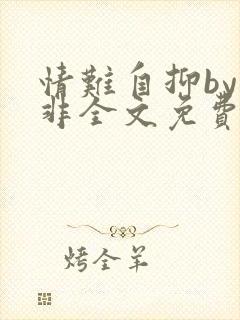 情難自抑by
非全文免費
烤全羊